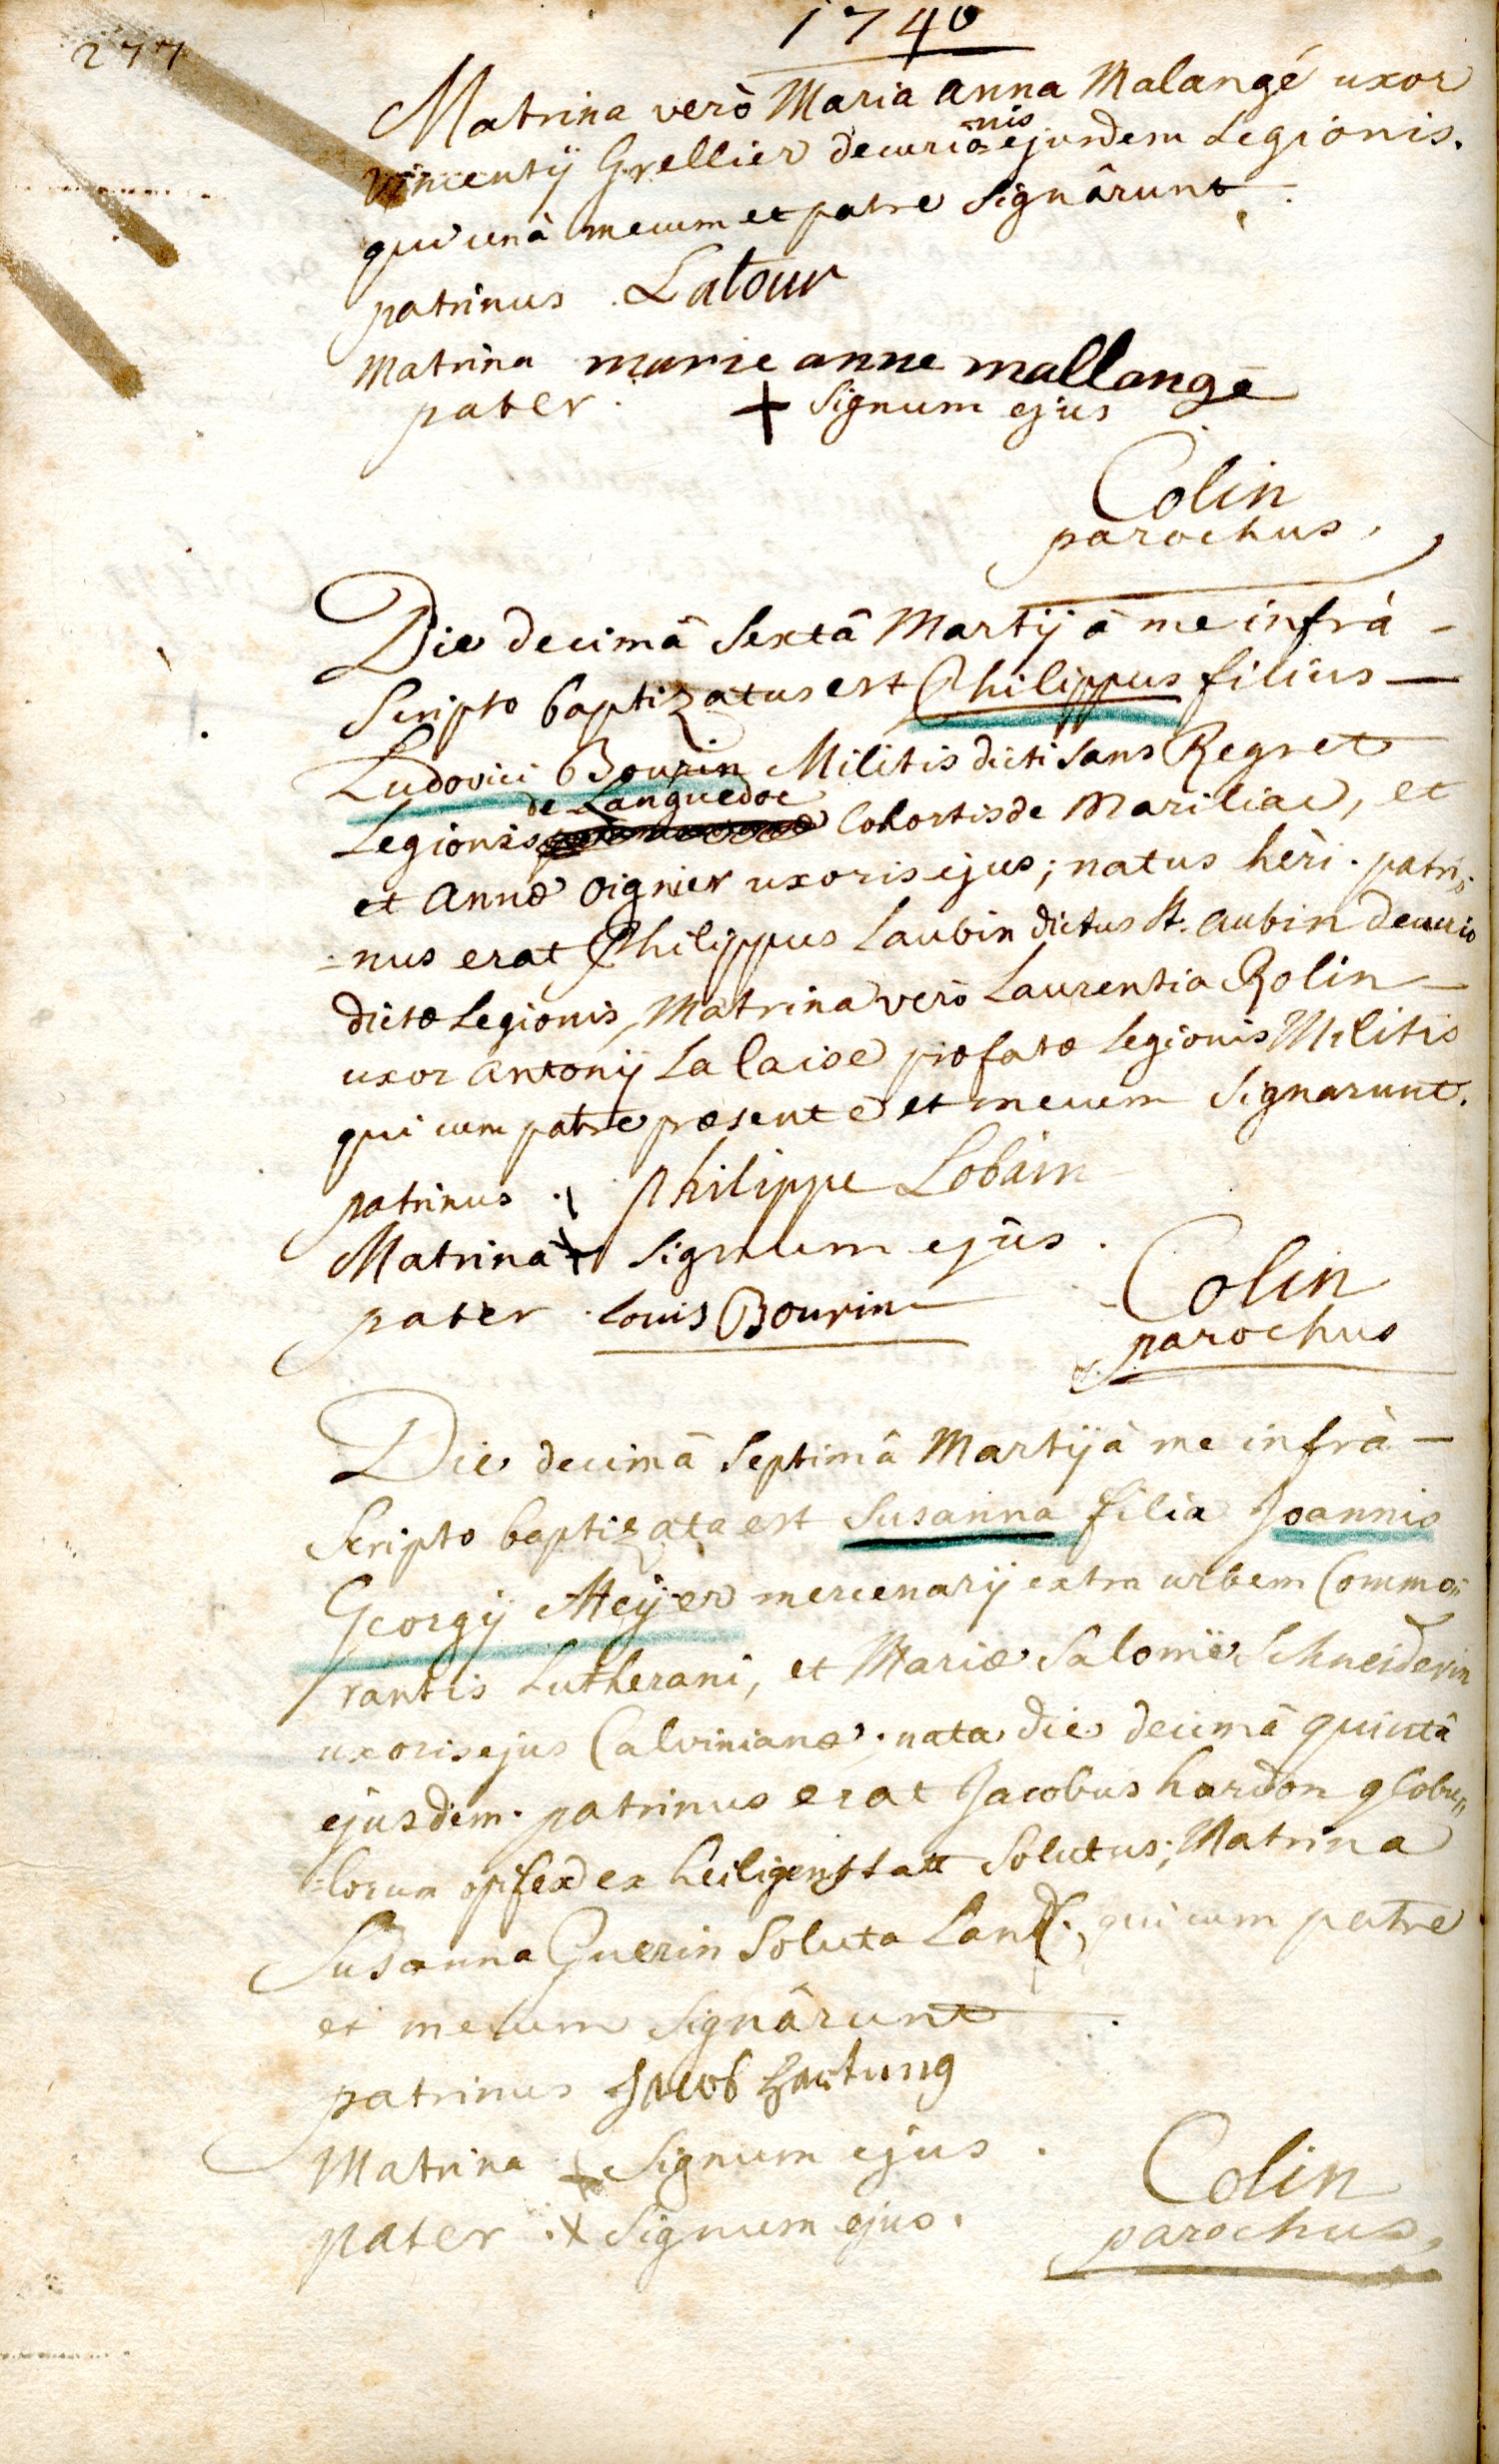 277
1740
Matrina verò Maria Anna Malangé uxor
Vincentÿ Grellier decurionis ejusdem Legionis.
qui unà mecum et patre signârunt.
patrinus Latour
Matrina marie anne mallange
pater. + signum ejus
Colin
parochus,
Die decimâ sextâ Martÿ à me infrà -
scripto baptizatus est Philippus filius —
Ludovici Bourin Militis dicti sans Regret
de Languedoc
Legionis Cohortis de Mariliac, et
et Annæ Oignier uxoris ejus; natus hèri. patri=
=nus erat Philippus Laubin dictus St. Aubin decurio
dictæ Legionis, Matrina verò Laurentia Rolin —
uxor Antonÿ La laise præfatæ Legionis Militis
qui cum patre præsente et mecum signarunt.
patrinus. philippe Lobain
Matrina + signum ejus.
pater. Louis Bourin
Colin
parochus
Die decimâ septimâ Martÿ à me infrà —
scripto baptizata est Susanna filia Joannis
Georgÿ Meÿer mercenarÿ extra urbem Commo=
rantis Lutherani, et Mariæ Salomë Schneiderin
uxoris ejus Calvinianæ. nata die decimâ quintâ
ejusdem. patrinus erat Jacobus hardon globu=
=lorum opifex ex heiligenstatt solutus; Matrina
Susanna Guerin soluta Land., qui cum patre
et mecum signârunt
patrinus Jacob Hartung
Matrina + signum ejus.
pater. + signum ejus.
Colin
parochus,